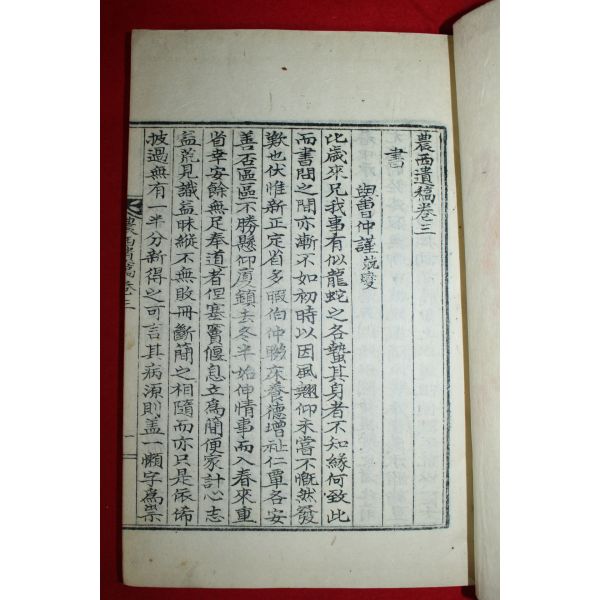 農西遺稿卷三
書
與曺仲謹兢燮
比歲來兄我事有似龍蛇之各蟄其身者不知緣何致此
而書問之間亦漸不如初時以因風翹仰未嘗不慨然發
歎也伏惟新正定省多暇伯仲聯床養德增祉仁覃各安
善否區區不勝懸仰廈鎮去冬半始伸情事而入春來重
省幸安餘無足奉道者但塞竇偃息立爲簡便家計心志
益荒見識益昧縱不無敗冊斷簡之相隨而亦只是依俙
披過無有一半分新得之可言其病源則盖一懶字爲祟
農西遺稿卷三
一